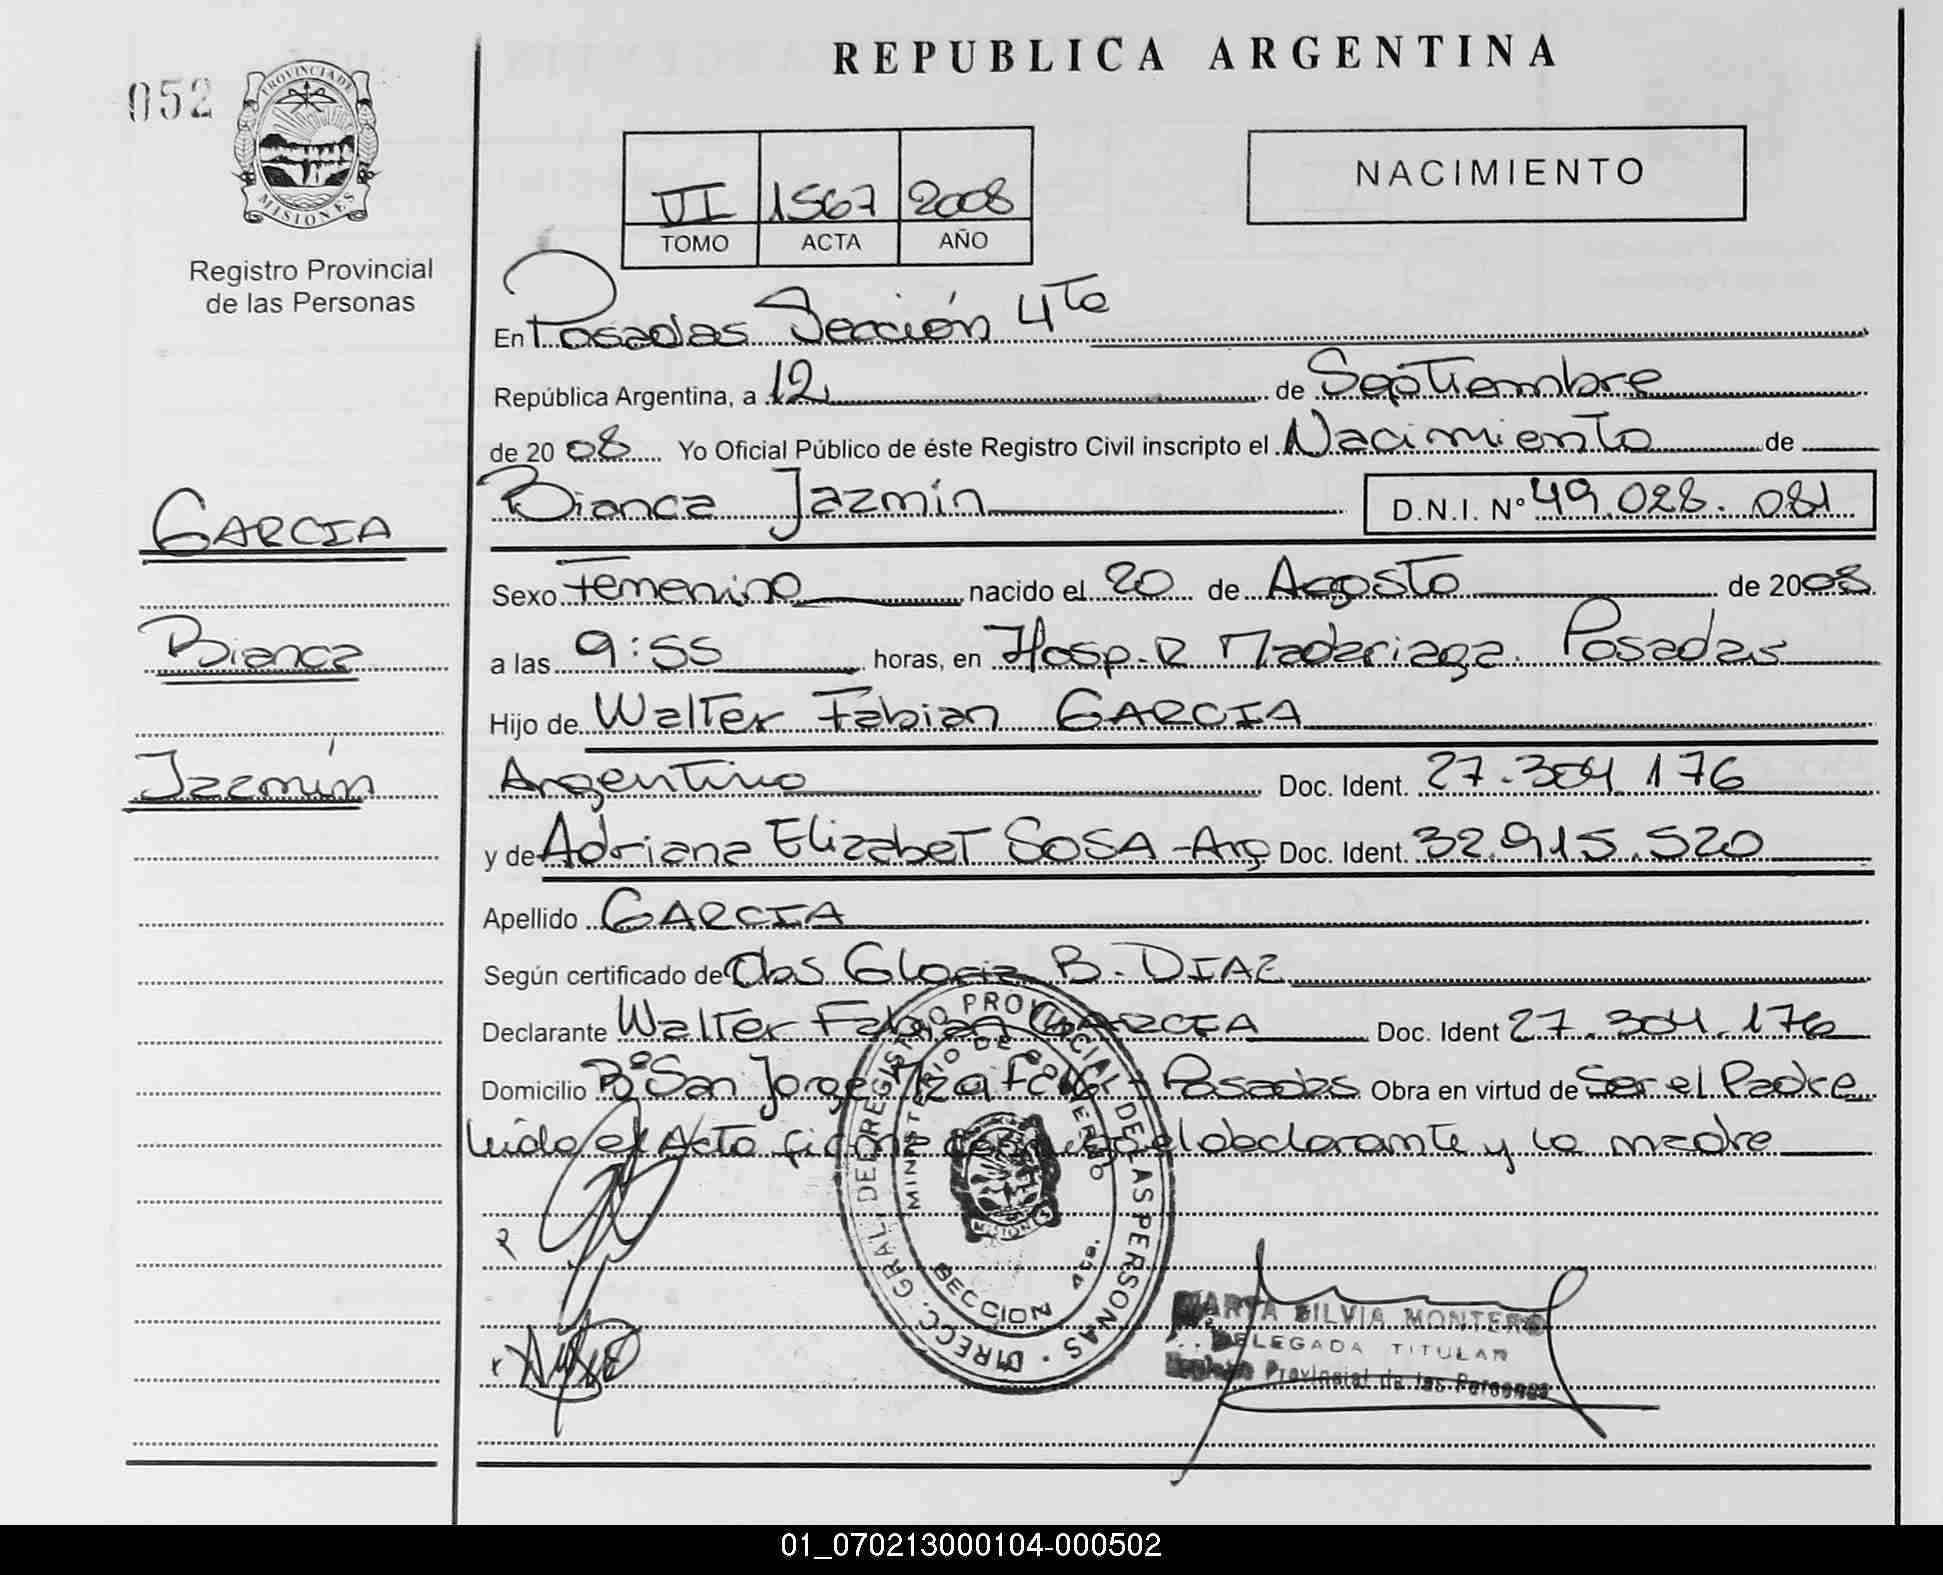 REPUBLICA ARGENTINA
052
PROVINCIA DE
MISIONES
Registro Provincial
de las Personas
VI 1567 2008
TOMO ACTA AÑO
NACIMIENTO
En Posadas Sección 4ta
República Argentina, a 12 de Septiembre
de 2008 Yo Oficial Público de éste Registro Civil inscripto el Nacimiento de
Bianca Jazmín D.N.I. Nº 49.028.081
GARCIA
Sexo Femenino nacido el 20 de Agosto de 2008
Bianca
a las 9:55 horas, en Hosp. R Madariaga. Posadas
Hijo de Walter Fabian GARCIA
Jazmín
Argentino Doc. Ident. 27.304.176
y de Adriana Elizabet SOSA - Arg Doc. Ident. 32.915.520
Apellido GARCIA
Según certificado de Obs Gloria B. DIAZ
Declarante Walter Fabian GARCIA Doc. Ident 27.304.176
Domicilio Bº San Jorge Posadas Obra en virtud de Ser el Padre
Leído el Acta el declarante y la madre
DIRECC. GRAL. DEL REGISTRO PROVINCIAL DE LAS PERSONAS
MINISTERIO DE GOBIERNO
MISIONES
SECCION 4
MARTA SILVIA MONTERO
DELEGADA TITULAR
Registro Provincial de las Personas
01_070213000104-000502